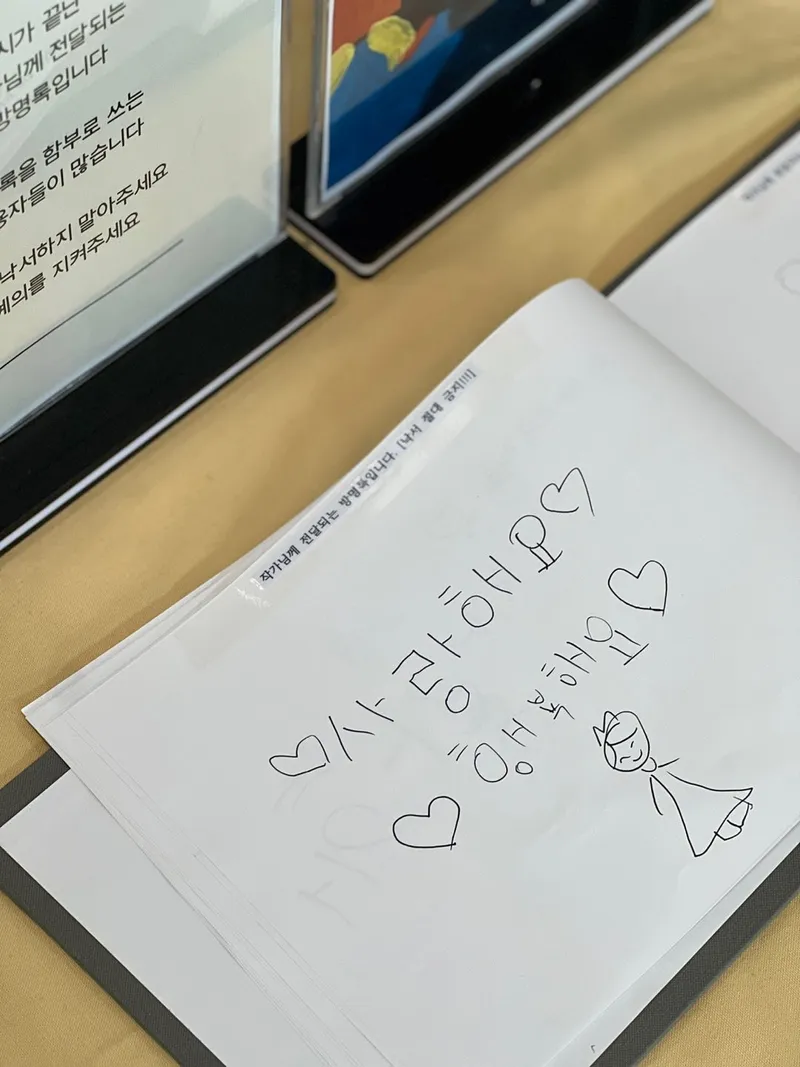 시가 끝난
님께 전달되는
방명록입니다
록을 함부로 쓰는
용자들이 많습니다
낙서하지 말아주세요
예의를 지켜주세요
작가님께 전달되는 방명록입니다. [낙서 절대 금지!!!]
사랑해요
행복해요